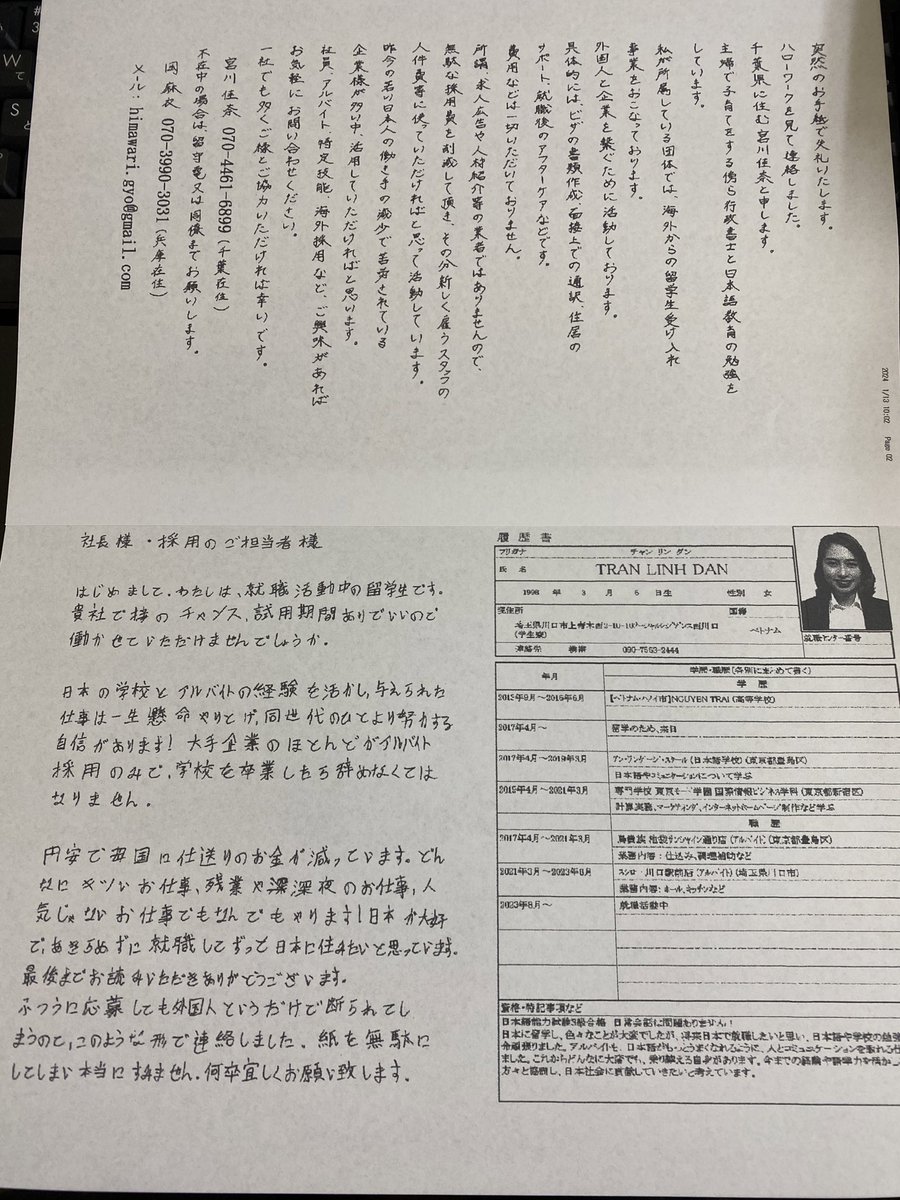 突然のお手紙で失礼いたします。
ハローワークを見て連絡しました。
千葉県に住む宮川佳奈と申します。
主婦で子育てをする傍ら行政書士と日本語教育の勉強を
しています。
私が所属している団体では、海外からの留学生受け入れ
事業をおこなっております。
外国人と企業を繋ぐために活動しております。
具体的には、ビザの書類作成、面接上での通訳、住居の
サポート、就職後のアフターケアなどです。
費用などは一切いただいておりません。
所謂、求人広告や人材紹介等の業者ではありませんので、
無駄な採用費を削減して頂き、その分新しく雇うスタッフの
人件費等に使っていただければと思って活動しています。
昨今の若い日本人の働き手の減少で苦労されている
企業様が多い中、活用していただければと思います。
社員、アルバイト、特定技能、海外採用など、ご興味があれば
お気軽にお問い合わせください。
一社でも多くご様とご協力いただければ幸いです。
宮川佳奈 070-4461-6899（千葉在住）
不在中の場合は、留守電又は同僚までお願いします。
岡麻衣 070-3990-3031（兵庫在住）
メール：himawari.gyo@gmail.com
2024 1/13 10:02 Page 02
社長様・採用のご担当者様
はじめまして、わたしは、就職活動中の留学生です。
貴社で様のチャンス、試用期間ありでいいので
働かせていただけませんでしょうか。
日本の学校とアルバイトの経験を活かし、与えられた
仕事は一生懸命やりとげ、同世代のひとより努力する
自信があります！大手企業のほとんどがアルバイト
採用のみで、学校を卒業したら辞めなくては
なりません。
円安で毎国に仕送りのお金が減っています。どん
なにキツいお仕事、残業や深深夜のお仕事、人
気じゃないお仕事でもなんでもやります！日本が大好
で、あきらめずに就職してずって日本に住みたいと思っています。
最後までお読みいただきありがとうございます。
ふつうに応募しても外国人というだけで断られてし
まうので、このような形で連絡しました。紙を無駄に
してしまい本当にすみません。何卒宜しくお願い致します。
履歴書
フリガナ チャン リン ダン
氏名 TRAN LINH DAN
1998 年 3 月 5 日生 性別 女
現住所 国籍
埼玉県川口市上青木西
(学生寮) ベトナム
連絡先 携帯 090-7553-2444
就職センター番号
年月 学歴・職歴(各別にまとめて書く)
学歴
2013年9月～2016年6月 【ベトナム・ハノイ市】NGUYEN TRAI (高等学校)
2017年4月～ 留学のため、来日
2017年4月～2019年3月 アン・ランゲージ・スクール (日本語学校) (東京都豊島区)
日本語やコミュニケーションについて学ぶ
2019年4月～2021年3月 専門学校 東京モード学園 国際情報ビジネス学科 (東京都新宿区)
計算実務、マーケティング、インターネットホームページ制作など学ぶ
職歴
2017年4月～2021年3月 鳥貴族 池袋サンシャイン通り店 (アルバイト) (東京都豊島区)
業務内容：仕込み、調理補助など
2021年3月～2023年8月 スシロー 川口駅前店 (アルバイト) (埼玉県川口市)
業務内容：ホール、キッチンなど
2023年8月～ 就職活動中
資格・特記事項など
日本語能力試験3級合格 日常会話に問題ありません！
日本に留学し、色々なことが大変でしたが、将来日本で就職したいと思い、日本語や学校の勉強
命頑張りました。アルバイトも、日本語がもっとうまくなれるように、人とコミュニケーションを取れる仕
ました。これからどんなに大変でも、乗り越える自身があります。今までの経験や語学力を活かし
方々と協調し、日本社会に貢献していきたいと考えています。